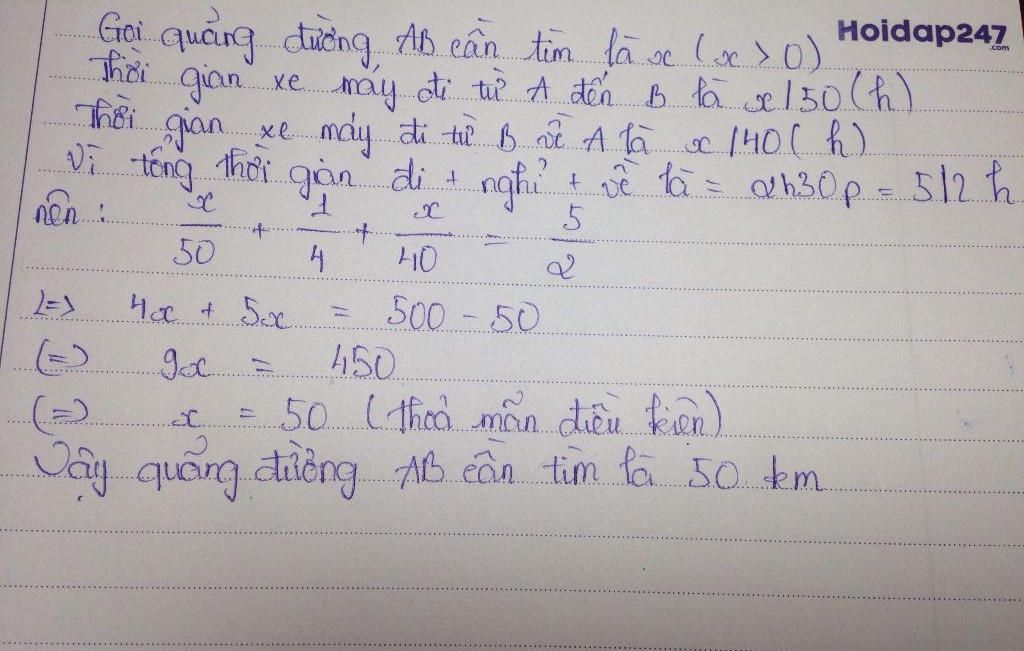 Gọi quãng đường AB cần tìm là x (x > 0)
Hoidap247.com
Thời gian xe máy đi từ A đến B là x/50 (h)
Thời gian xe máy đi từ B về A là x/40 (h)
Vì tổng thời gian đi + nghỉ + về là = 2h30p = 5/2 h
nên : x/50 + 1/4 + x/40 = 5/2
(=) 4x + 5x = 500 - 50
(=) 9x = 450
(=) x = 50 (thoả mãn điều kiện)
Vậy quãng đường AB cần tìm là 50 km